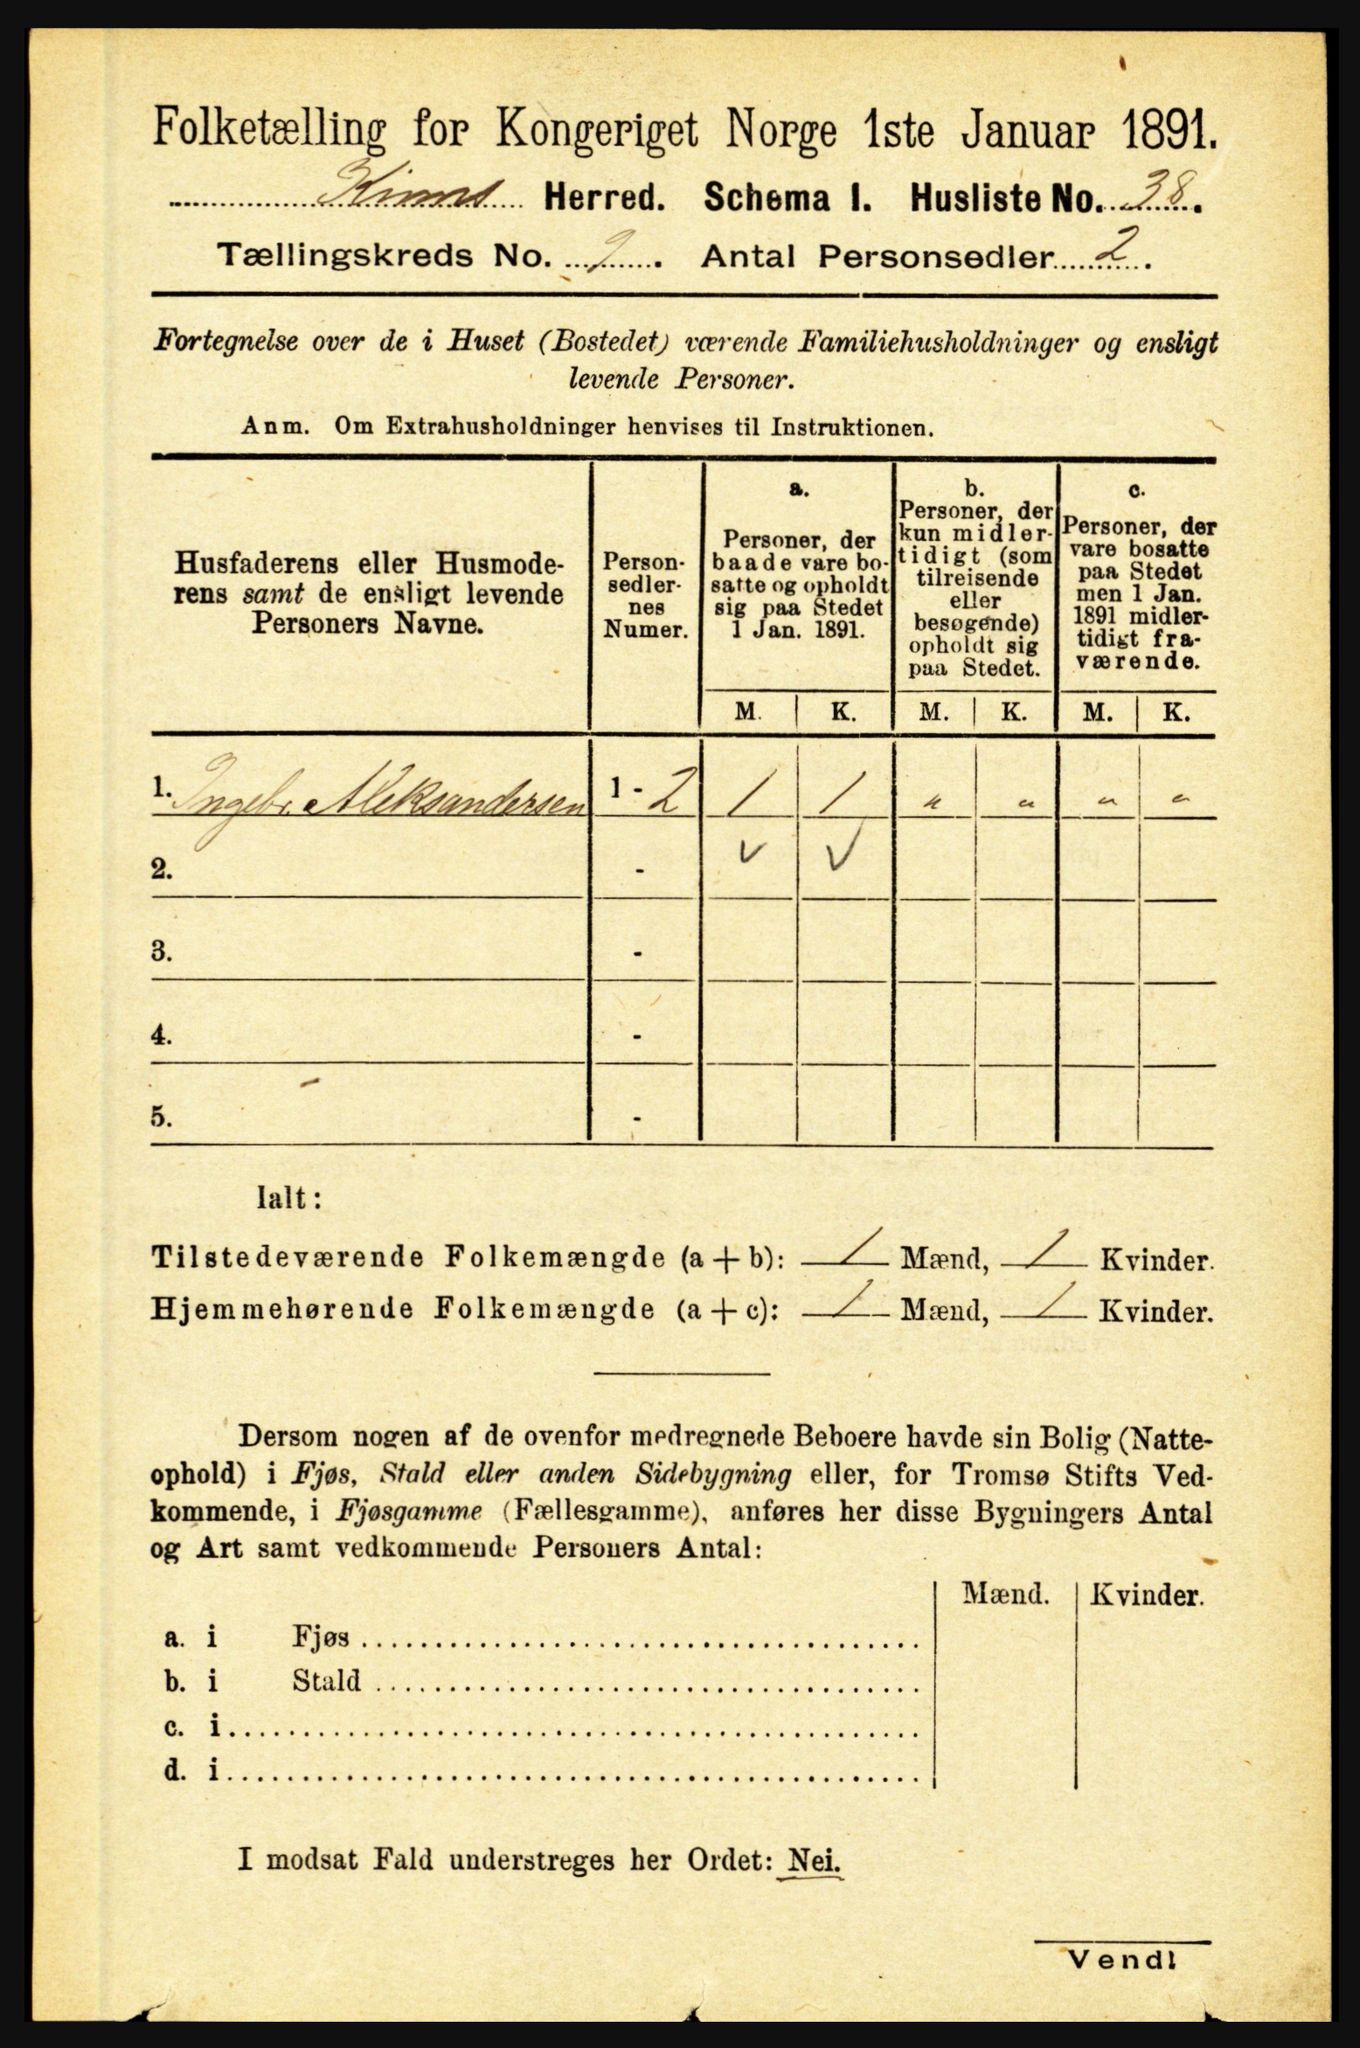 Folketælling for Kongeriget Norge 1ste Januar 1891.
Kinns Herred. Schema I. Husliste No. 38.
Tællingskreds No. 9. Antal Personsedler 2.
Fortegnelse over de i Huset (Bostedet) værende Familiehusholdninger og ensligt
levende Personer.
Anm. Om Extrahusholdninger henvises til Instruktionen.
Husfaderens eller Husmode-
rens samt de ensligt levende
Personers Navne.
Person-
sedler-
nes
Numer.
a.
Personer, der
baade vare bo-
satte og opholdt
sig paa Stedet
1 Jan. 1891.
b.
Personer, der
kun midler-
tidigt (som
tilreisende
eller
besøgende)
opholdt sig
paa Stedet.
c.
Personer, der
vare bosatte
paa Stedet
men 1 Jan.
1891 midler-
tidigt fra-
værende.
M. K. M. K. M. K.
1. Ingebr. Aleksandersen 1 - 2 1 1 " " " "
2. - ✓ ✓
3. -
4. -
5. -
Ialt:
Tilstedeværende Folkemængde (a + b): 1 Mænd, 1 Kvinder.
Hjemmehørende Folkemængde (a + c): 1 Mænd, 1 Kvinder.
Dersom nogen af de ovenfor medregnede Beboere havde sin Bolig (Natte-
ophold) i Fjøs, Stald eller anden Sidebygning eller, for Tromsø Stifts Ved-
kommende, i Fjøsgamme (Fællesgamme), anføres her disse Bygningers Antal
og Art samt vedkommende Personers Antal:
Mænd. Kvinder.
a. i Fjøs
b. i Stald
c. i
d. i
I modsat Fald understreges her Ordet: Nei.
Vend!